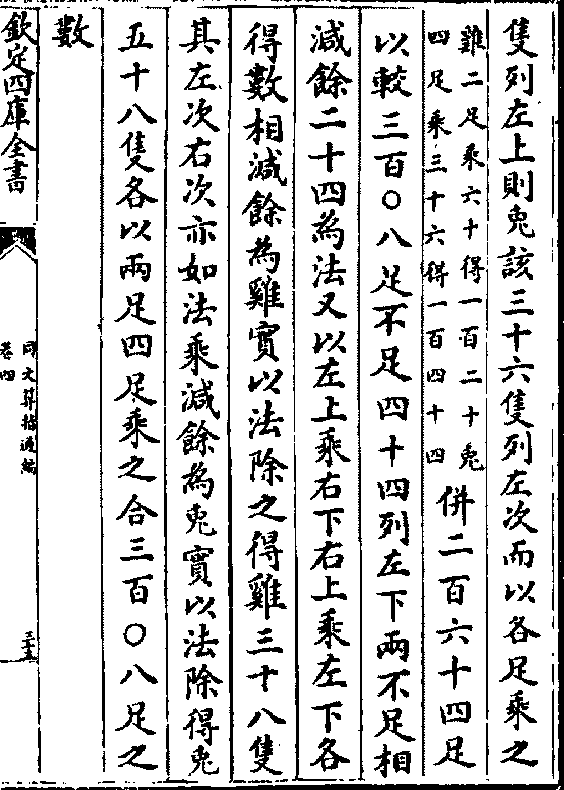 隻列左上則兎該三十六隻列左次而以各足乘之
雞二足乘六十得一百二十兎
四足乘三十六得一百四十四
併二百六十四足
以較三百〇八足不足四十四列左下兩不足相
減餘二十四為法又以左上乘右下右上乘左下各
得數相減餘為雞實以法除之得雞三十八隻
其左次右次亦如法乘減餘為兎實以法除得兎
五十八隻各以兩足四足乘之合三百〇八足之
數
欽定四庫全書
同文算指通編
卷四
三十五